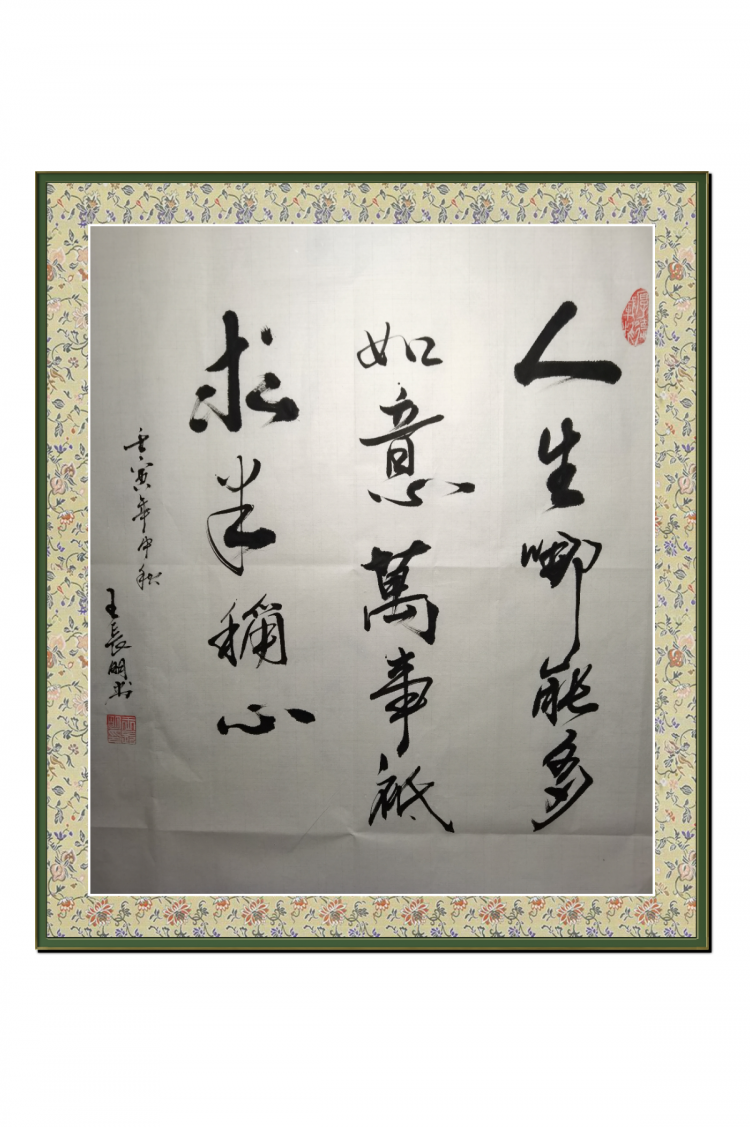 人生哪能多
如意萬事祇
求半稱心
壬寅年中秋
王長明书